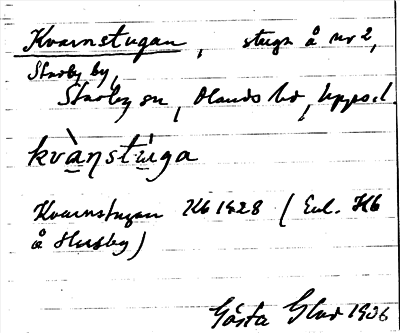 Kvarnstugan, stuga å nr 2,
Starby by,
Starby sn, Olands hd, Upps.l.
kvàṇstúga
Kvarnstugan Hb 1828 (Enl. Hb
å Husby)
Gösta Glad 1936